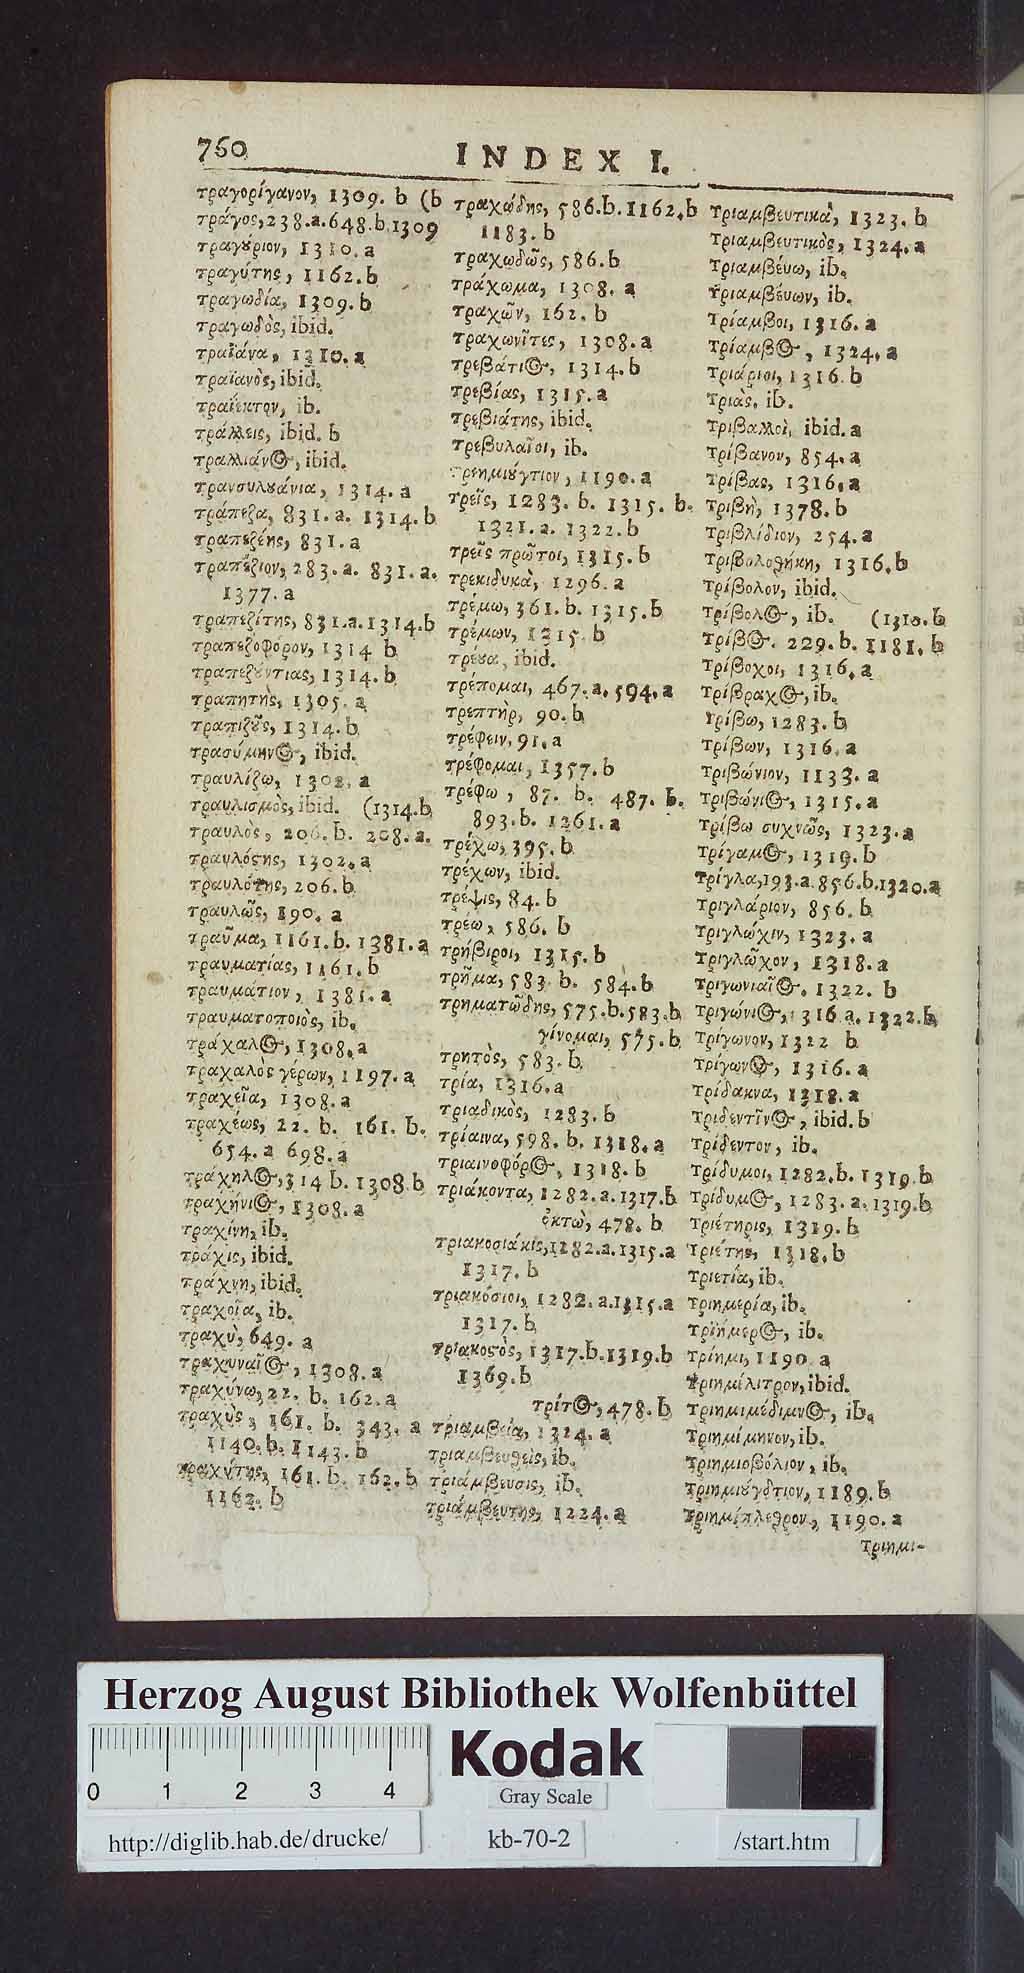 760
INDEX I.
τραγορίγανον, 1309. b (b
τράγος, 238.a. 648.b. 1309
τραγύριον, 1310. a
τραγύτης, 1162. b
τραγωδία, 1309. b
τραγωδὸς, ibid.
τραϊάνα, 1310. a
τραϊανὸς, ibid.
τραΐεκτον, ib.
τράλλεις, ibid. b
τραλλιάνος, ibid.
τρανσυλυάνια, 1314. a
τράπεζα, 831. a. 1314. b
τραπεζένς, 831. a
τραπέζιον, 283. a. 831. a.
1377. a
τραπεζίτης, 831.a. 1314. b
τραπεζοφόρον, 1314 b
τραπεζύντιας, 1314. b
τραπητὴς, 1305. a
τραπιζῦς, 1314. b
τρασύμηνος, ibid.
τραυλίζω, 1302. a
τραυλισμὸς, ibid. (1314. b
τραυλὸς, 206. b. 208. a.
τραυλόσης, 1302. a
τραυλότης, 206. b
τραυλῶς, 190. a
τραῦμα, 1161. b. 1381. a
τραυματίας, 1161. b
τραυμάτιον, 1381. a
τραυματοποιὸς, ib.
τράχαλος, 1308. a
τραχαλὸς γέρων, 1197. a
τραχεῖα, 1308. a
τραχέως, 22. b. 161. b.
654. a 698. a
τράχηλος, 314 b. 1308 b
τραχήνιος, 1308. a
τραχίνη, ib.
τράχις, ibid.
τράχνη, ibid.
τραχοῖα, ib.
τραχὺ, 649. a
τραχυναῖος, 1308. a
τραχύνω, 22. b. 162. a
τραχὺς, 161. b. 343. a
1140. b. 1143. b
τραχύτης, 161. b. 162. b
1162. b
τραχώδης, 586. b. 1162. b
1183. b
τραχωδῶς, 586. b
τράχωμα, 1308. a
τραχῶν, 162. b
τραχωνῖτες, 1308. a
τρεβάτιος, 1314. b
τρεβίας, 1315. a
τρεβιάτης, ibid.
τρεβυλαῖοι, ib.
τρεημιύγτιον, 1190. a
τρεῖς, 1283. b. 1315. b.
1321. a. 1322. b
τρεῖς πρῶτοι, 1315. b
τρεκιδυκὰ, 1296. a
τρέμω, 361. b. 1315. b
τρέμων, 1215. b
τρέυα, ibid.
τρέπομαι, 467. a. 594. a
τρεπτὴρ, 90. b
τρέφειν, 91. a
τρέφομαι, 1357. b
τρέφω, 87. b. 487. b.
893. b. 1261. a
τρέχω, 395. b
τρέχων, ibid.
τρέψις, 84. b
τρέω, 586. b
τρήβιροι, 1315. b
τρῆμα, 583. b. 584. b
τρηματώδης, 575. b. 583. b
γίνομαι, 575. b
τρητὸς, 583. b
τρία, 1316. a
τριαδικὸς, 1283. b
τρίαινα, 598. b. 1318. a
τριαινοφόρος, 1318. b
τριάκοντα, 1282. a. 1317. b
ὀκτὼ, 478. b
τριακοσιάκις, 1282. a. 1315. a
1317. b
τριακόσιοι, 1282. a. 1315. a
1317. b
τριακοστὸς, 1317. b. 1319. b
1369. b
τρίτος, 478. b
τριαμβεία, 1324. a
τριαμβευθεὶς, ib.
τριάμβευσις, ib.
τριάμβευτης, 1224. a
Τριαμβευτικὰ, 1323. b
Τριαμβευτικὸς, 1324. a
Τριαμβεύω, ib.
Τριαμβεύων, ib.
Τρίαμβοι, 1316. a
Τρίαμβος, 1324. a
Τριάριοι, 1316. b
Τριας. ib.
Τριβαλλοὶ, ibid. a
Τρίβανον, 854. a
Τρίβας, 1316. a
Τριβὴ, 1378. b
Τριβλίδιον, 254. a
Τριβολοθήκη, 1316. b
Τρίβολον, ibid.
Τρίβολος, ib. (1310. b
Τρίβος. 229. b. 1181. b
Τρίβοχοι, 1316. a
Τρίβραχος, ib.
Τρίβω, 1283. b
Τρίβων, 1316. a
Τριβώνιον, 1133. a
Τριβώνιος, 1315. a
Τρίβω συχνῶς, 1323. a
Τρίγαμος, 1319. b
Τρίγλα, 193. a. 856. b. 1320. a
Τριγλάριον, 856. b
Τριγλώχιν, 1323. a
Τριγλῶχον, 1318. a
Τριγωνιαῖος. 1322. b
Τριγώνιος, 1316 a. 1322. b
Τρίγωνον, 1322 b
Τρίγωνος, 1316. a
Τρίδακνα, 1318. a
Τριδεντῖνος, ibid. b
Τρίδεντον, ib.
Τρίδυμοι, 1282. b. 1319. b
Τρίδυμος, 1283. a. 1319. b
Τριέτηρις, 1319. b
Τριέτης, 1318. b
Τριετία, ib.
Τριημερία, ib.
Τριήμερος, ib.
Τρίημι, 1190. a
Τριημίλιτρον, ibid.
Τριημιμέδιμνος, ib.
Τριημίμηνον, ib.
Τριημιοβόλιον, ib.
Τριημιύγδτιον, 1189. b
Τριημίπλεθρον, 1190. a
Τριημι-
Herzog August Bibliothek Wolfenbüttel
0 1 2 3 4
Kodak
Gray Scale
http://diglib.hab.de/drucke/
kb-70-2
/start.htm